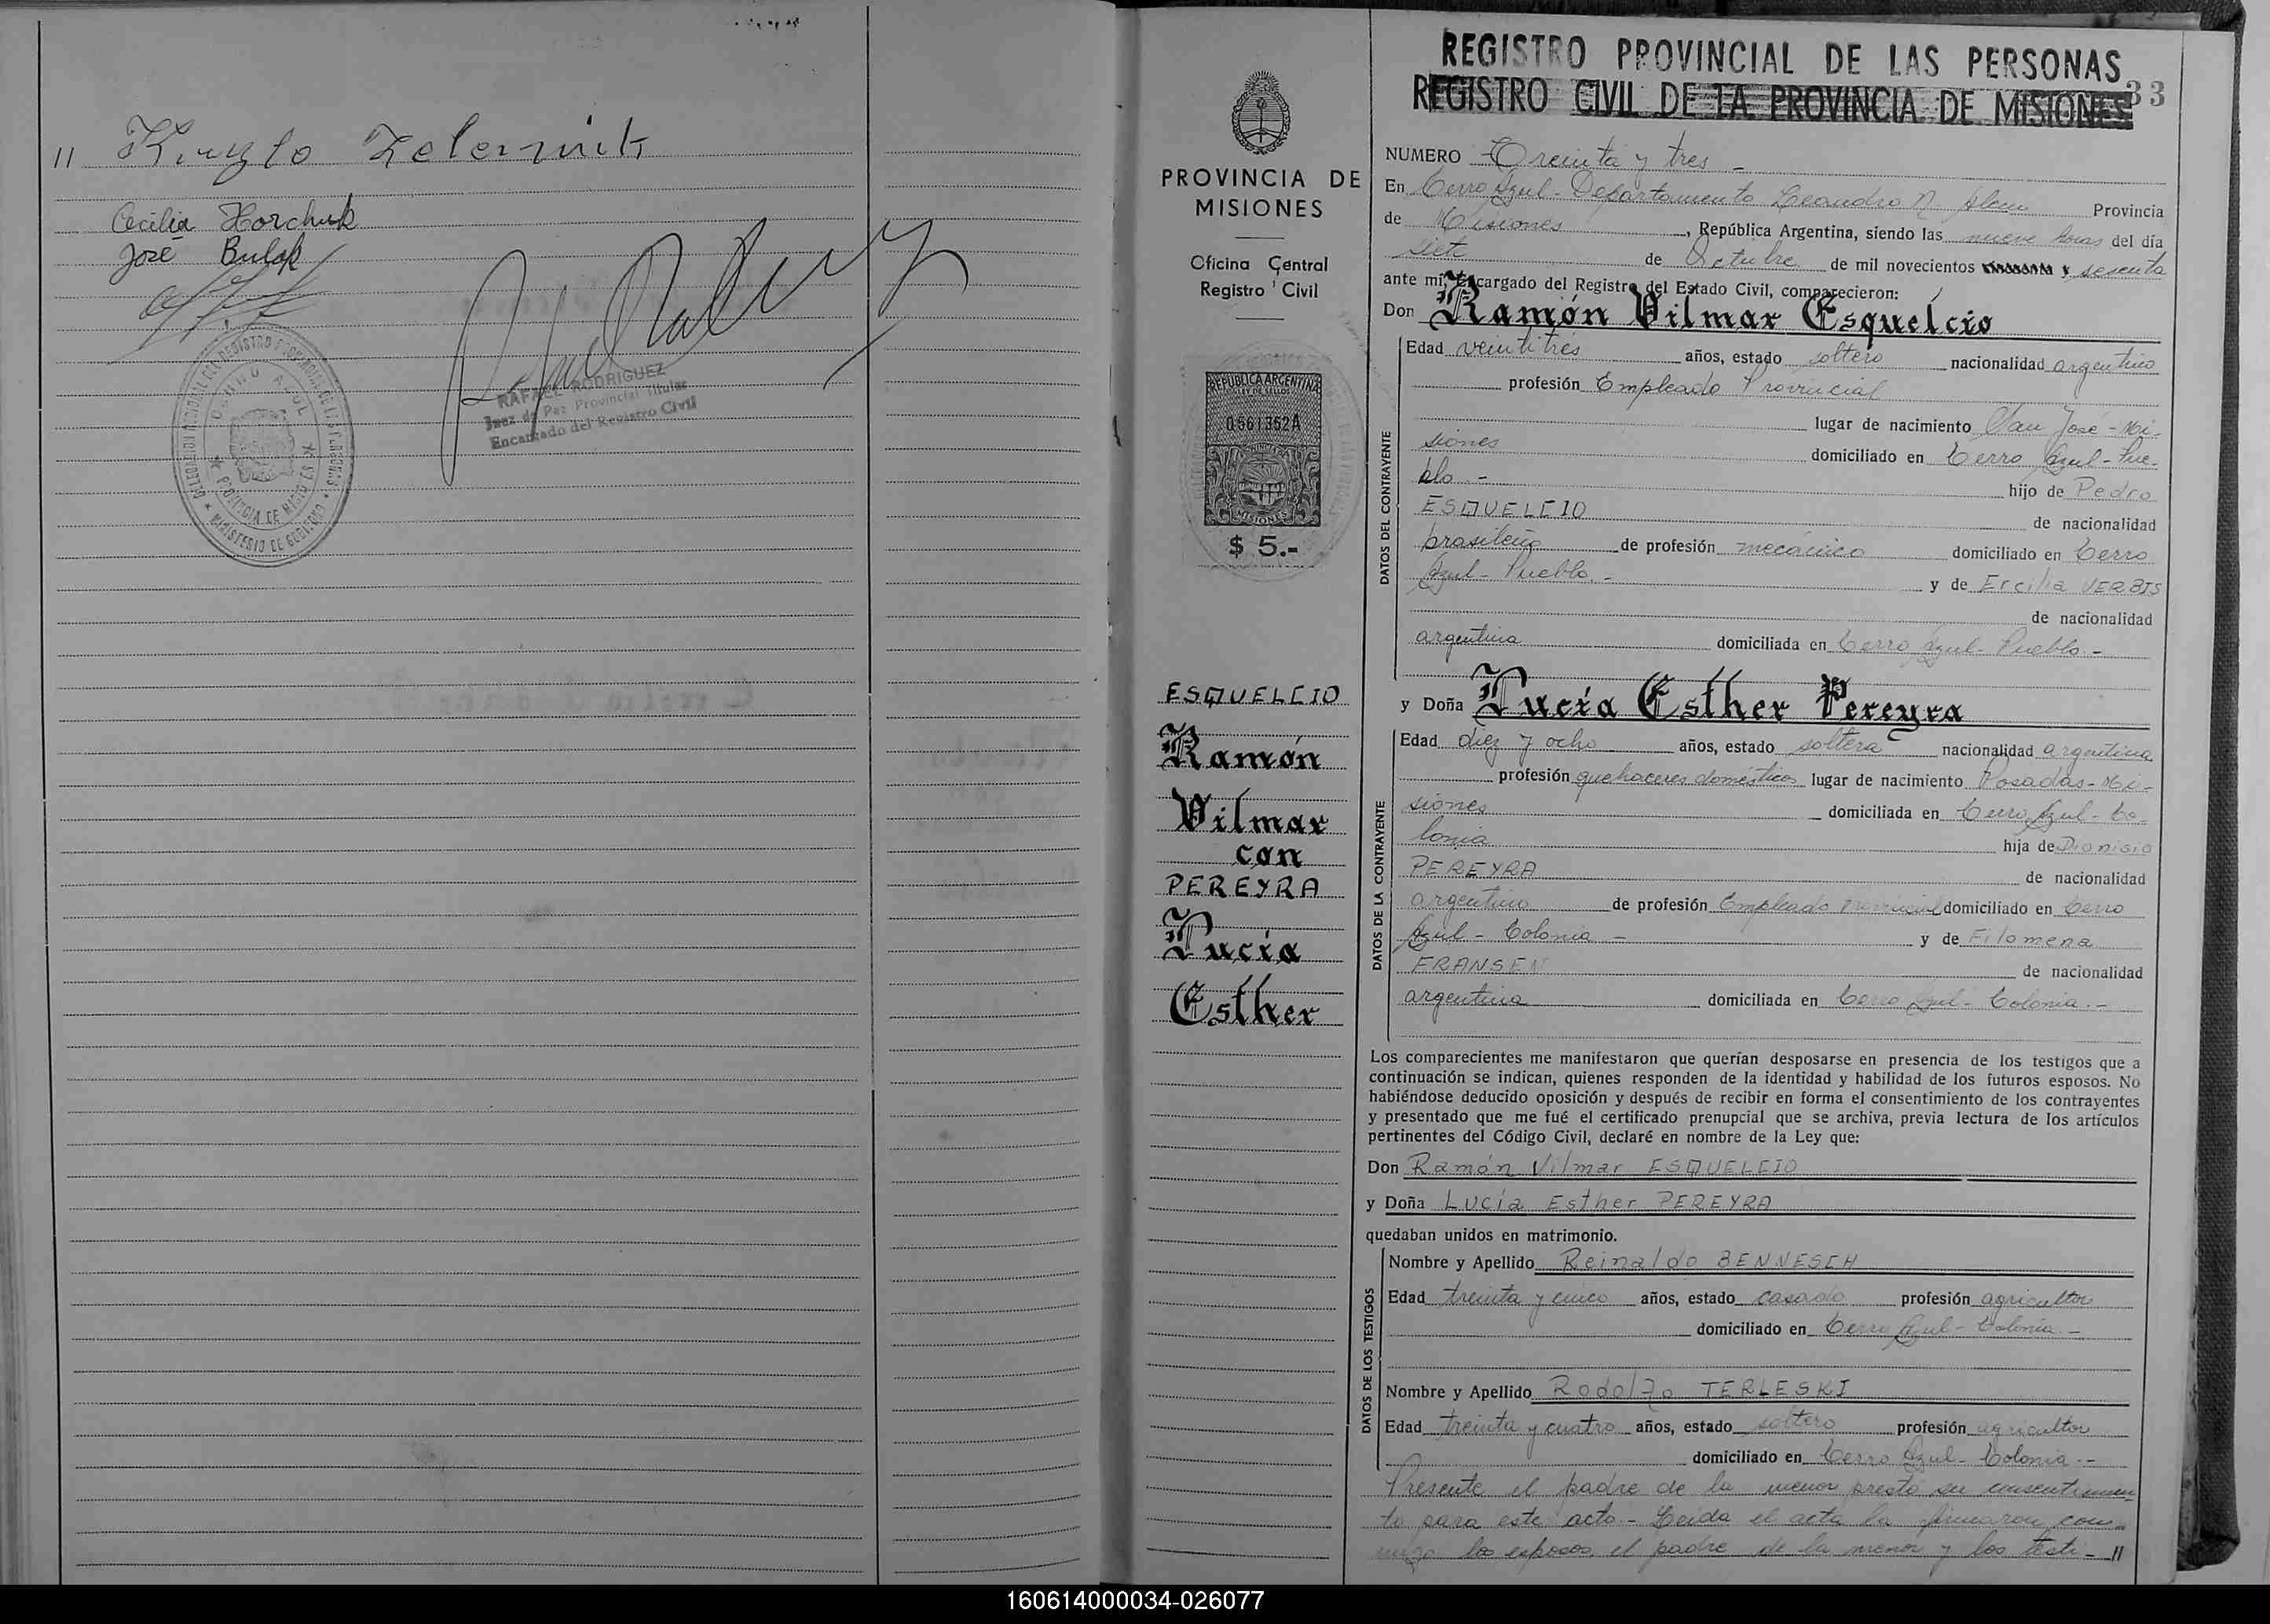 11 Kiryło Zeleznik
Cecilia Horchuk
José Bulak
RAFAEL RODRIGUEZ
Juez de Paz Provincial Titular
Encargado del Registro Civil
CERRO AZUL
PROVINCIA DE MISIONES
MINISTERIO DE GOBIERNO
PROVINCIA DE
MISIONES
Oficina Central
Registro Civil
REPUBLICA ARGENTINA
LEY DE SELLOS
0561352A
MISIONES
$ 5.-
ESQUELCIO
Ramón
Vilmar
con
PEREYRA
Lucía
Esther
REGISTRO PROVINCIAL DE LAS PERSONAS
REGISTRO CIVIL DE LA PROVINCIA DE MISIONES 33
NUMERO Treinta y tres -
En Cerro Azul - Departamento Leandro N. Alem Provincia
de Misiones, República Argentina, siendo las nueve horas del día
siete de Octubre de mil novecientos cincuenta y sesenta
ante mí, Encargado del Registro del Estado Civil, comparecieron:
Don Ramón Vilmar Esquelcio
DATOS DEL CONTRAYENTE
Edad veintitres años, estado soltero nacionalidad argentino
profesión Empleado Provincial
lugar de nacimiento San José - Mi-
siones domiciliado en Cerro Azul - Pue-
blo - hijo de Pedro
ESQUELCIO de nacionalidad
brasileño de profesión mecánico domiciliado en Cerro
Azul - Pueblo - y de Ercilia VERBIS
de nacionalidad
argentina domiciliada en Cerro Azul - Pueblo -
y Doña Lucía Esther Pereyra
DATOS DE LA CONTRAYENTE
Edad diez y ocho años, estado soltera nacionalidad argentina
profesión quehaceres domésticos lugar de nacimiento Posadas - Mi-
siones domiciliada en Cerro Azul - Co-
lonia hija de Dionisio
PEREYRA de nacionalidad
argentino de profesión Empleado Provincial domiciliado en Cerro
Azul - Colonia - y de Filomena
FRANSEN de nacionalidad
argentina domiciliada en Cerro Azul - Colonia -
Los comparecientes me manifestaron que querían desposarse en presencia de los testigos que a
continuación se indican, quienes responden de la identidad y habilidad de los futuros esposos. No
habiéndose deducido oposición y después de recibir en forma el consentimiento de los contrayentes
y presentado que me fué el certificado prenupcial que se archiva, previa lectura de los artículos
pertinentes del Código Civil, declaré en nombre de la Ley que:
Don Ramón Vilmar ESQUELCIO
y Doña Lucía Esther PEREYRA
quedaban unidos en matrimonio.
DATOS DE LOS TESTIGOS
Nombre y Apellido Reinaldo BENNESCH
Edad treinta y cinco años, estado casado profesión agricultor
domiciliado en Cerro Azul - Colonia -
Nombre y Apellido Rodolfo TERLESKI
Edad treinta y cuatro años, estado soltero profesión agricultor
domiciliado en Cerro Azul - Colonia -
Presente el padre de la menor presta su consentimien
to para este acto - Leida el acta la firmaron con-
migo los esposos, el padre de la menor y los testi- 11
160614000034-026077